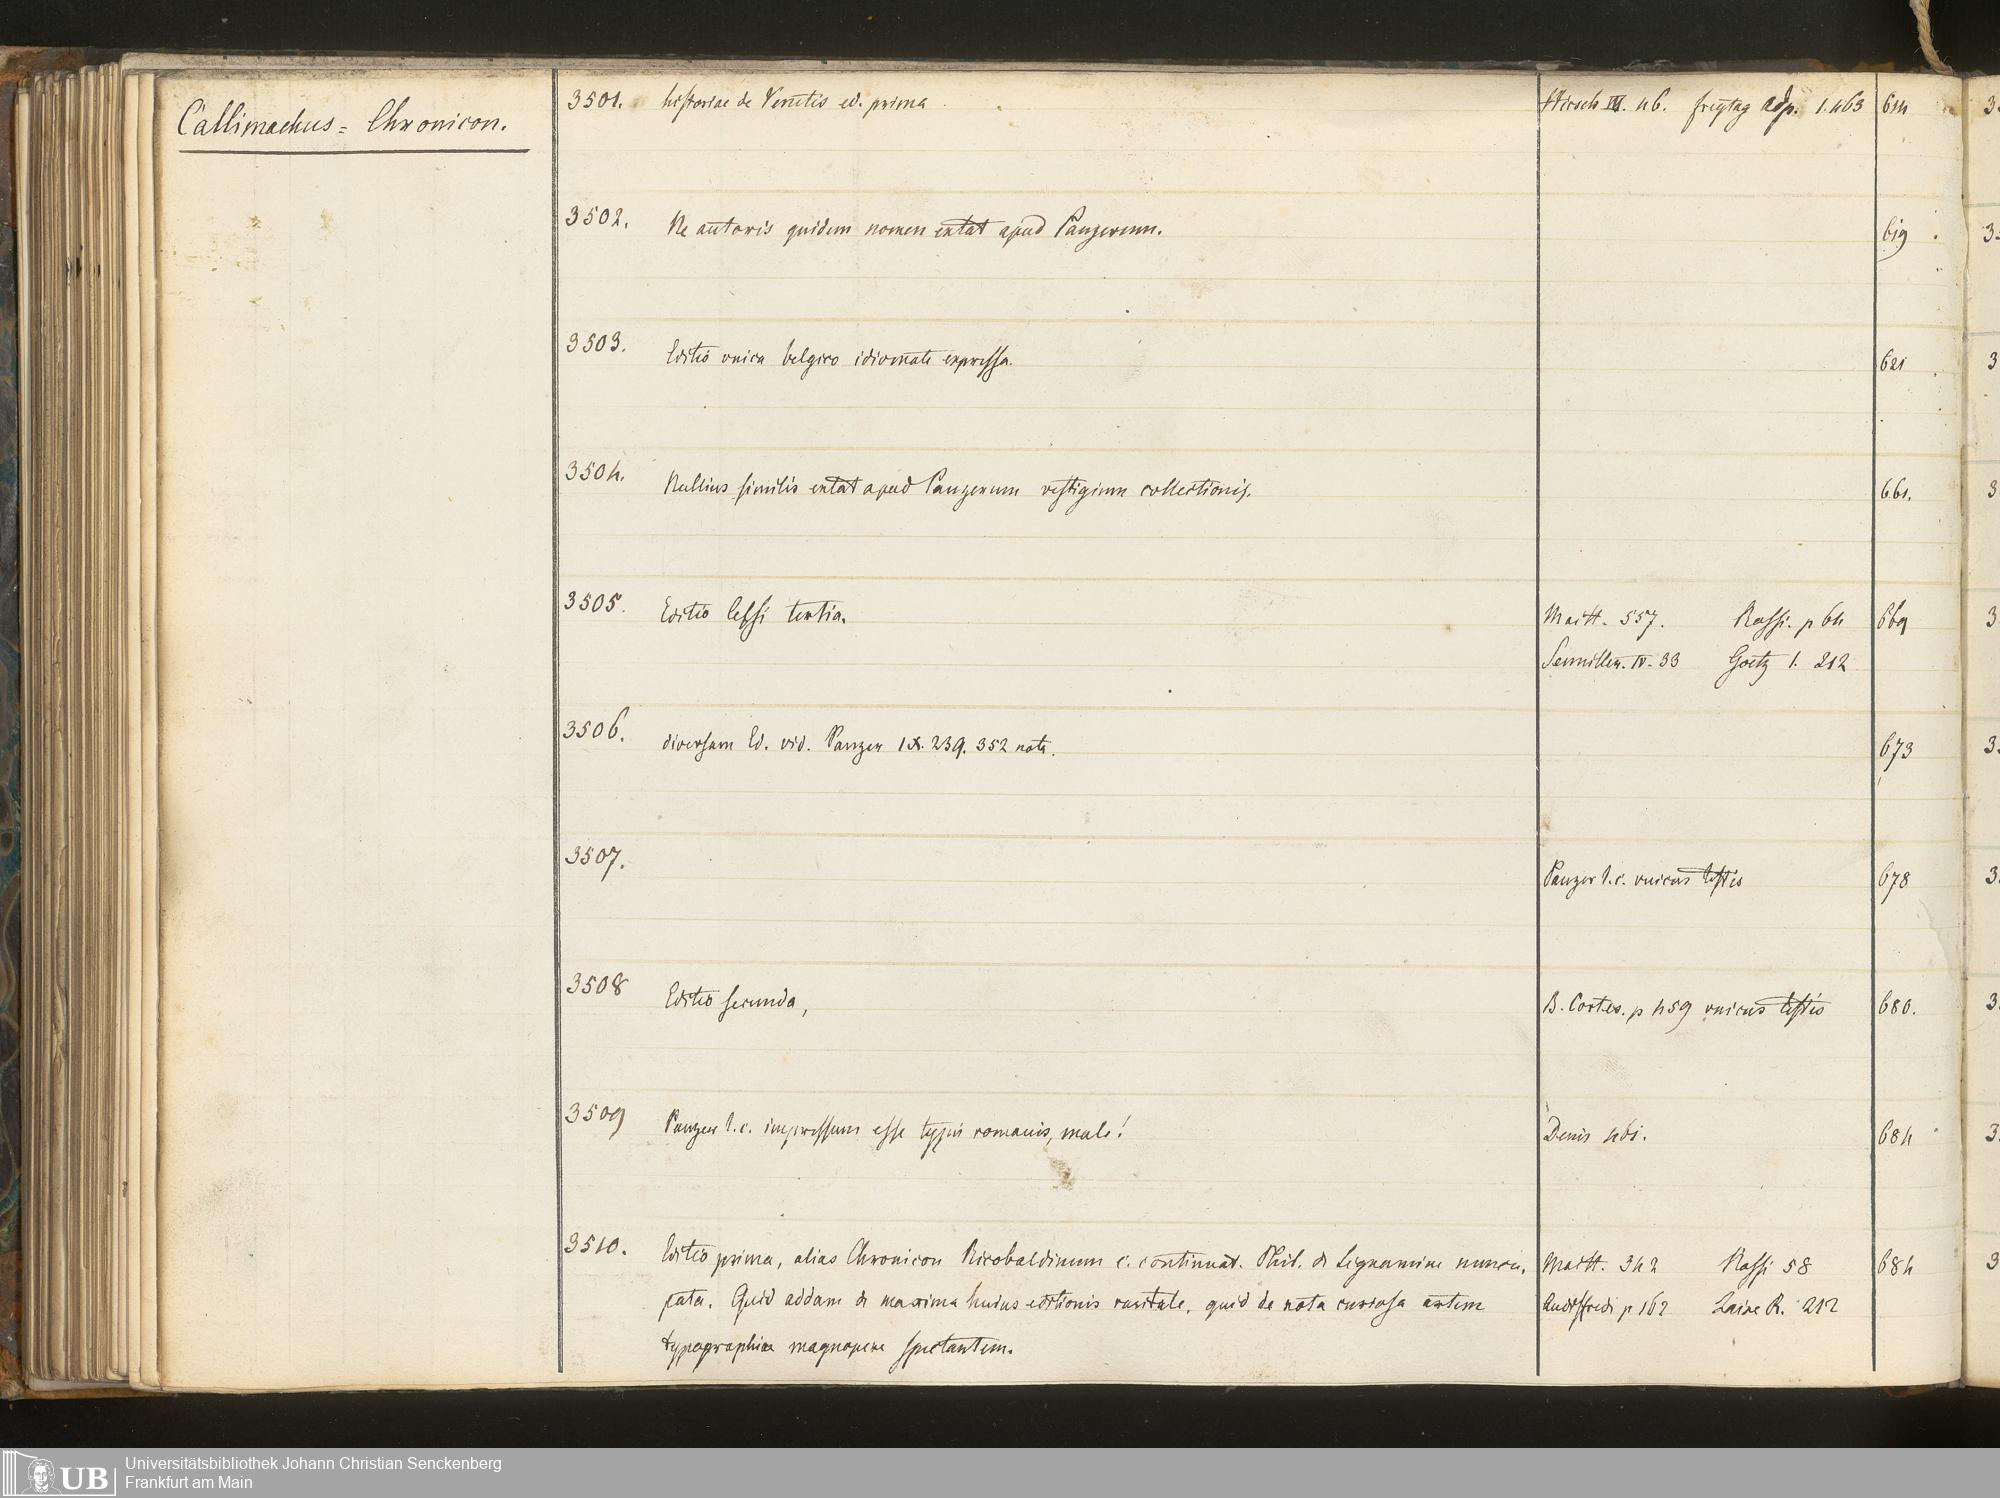 Callimachus = Chronicon.
3501. historiae de Venetis ed. prima Hirsch III. 46. freytag adp. 1.463 614
3502. Ne autoris quidem nomen extat apud Panzerum. 619
3503. Editio unica belgico idiomate expressa. 621
3504. Nullius similis extat apud Panzerum vestigium collectionis. 661.
3505. Editio Cessi tertia. Maitt. 557. Rossi. p 64 669
Semiller. IV. 33 Goetz 1. 212
3506. diversam Ed. vid. Panzer IX. 239. 352 nota. 673
3507. Panzer l.c. unicus testis 678
3508 Editio secunda, B. Cortes. p 459 unicus testis 680.
3509 Panzer l.c. impressum esse typis romanis, male! Denis 461. 684
3510. Editio prima, alias Chronicon Ricobaldinum c. continuat. Phil. de Lignamine nuncu, Maitt. 342 Rossi 58 684
pata. Quid addam de maxima huius editionis raritate, quid de nota curiosa artem Audiffredi p 162 Laire R. 212
typographiae magnopere spectantem.
UB
Universitätsbibliothek Johann Christian Senckenberg
Frankfurt am Main